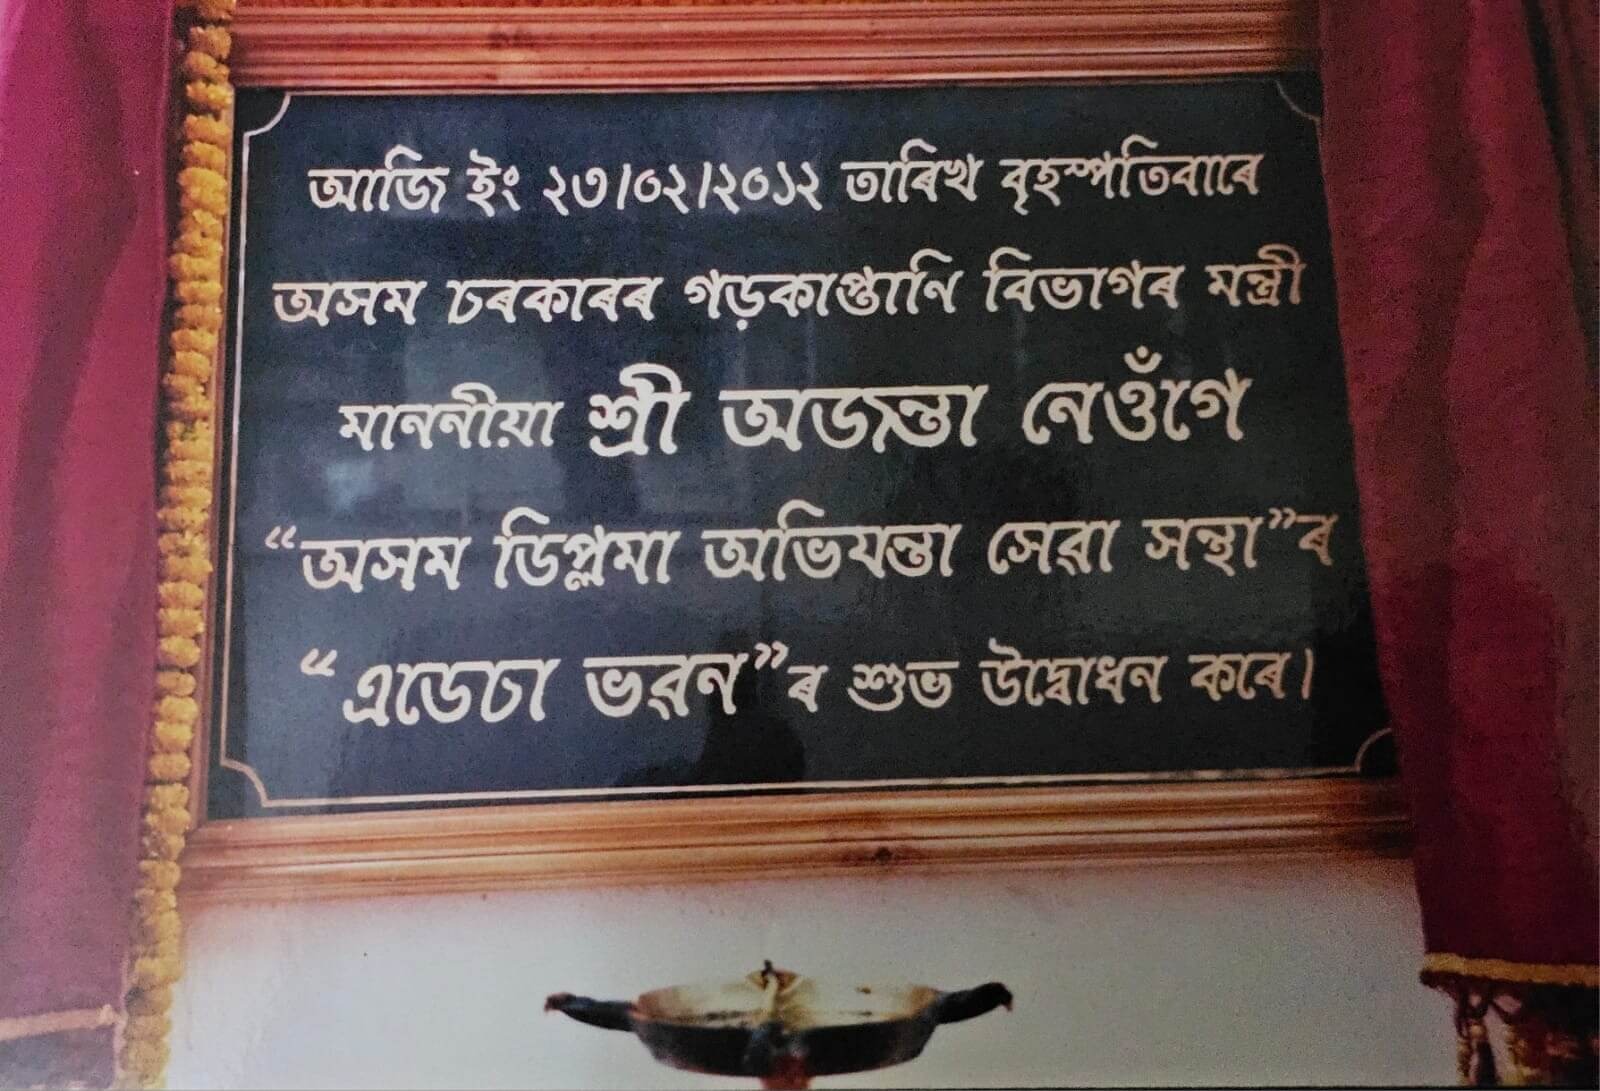 আজি ইং ২৩/০২/২০১২ তাৰিখ বৃহস্পতিবাৰে
অসম চৰকাৰৰ গড়কাপ্তানি বিভাগৰ মন্ত্ৰী
মাননীয়া শ্ৰী অজন্তা নেওঁগে
“অসম ডিপ্লমা অভিযন্তা সেৱা সন্থা”ৰ
“এডেচা ভৱন”ৰ শুভ উদ্বোধন কৰে।